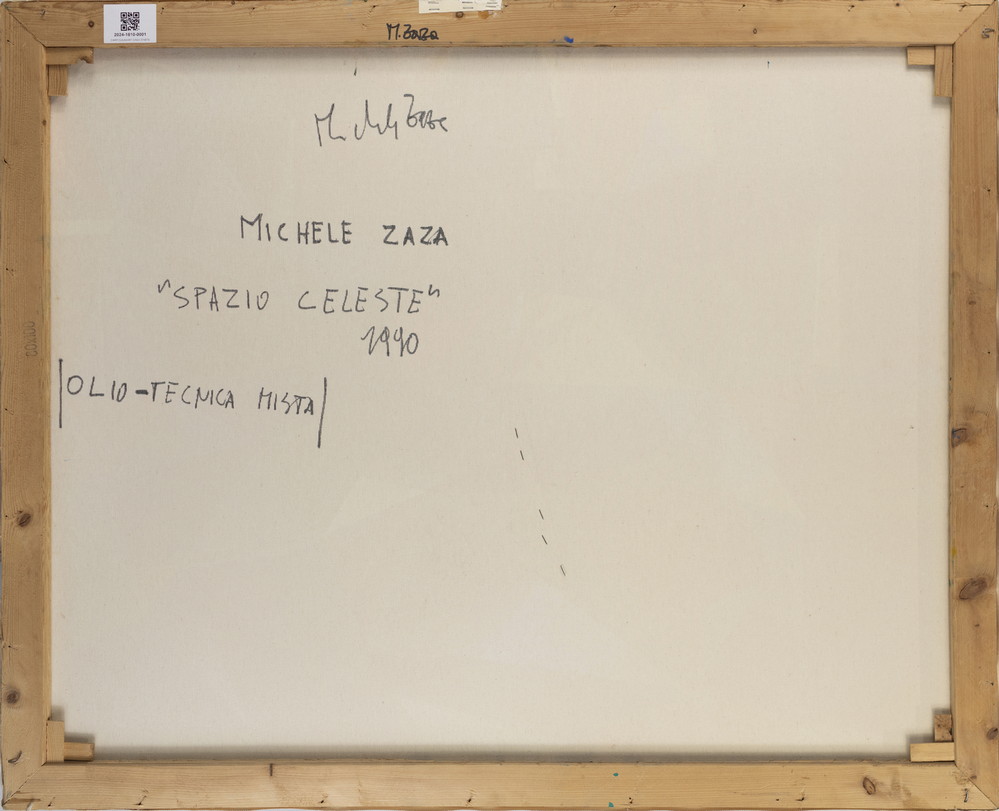 2024-1810-0001
M. Zaza
Michele Zaza
MICHELE ZAZA
"SPAZIO CELESTE"
1990
|OLIO-TECNICA MISTA|